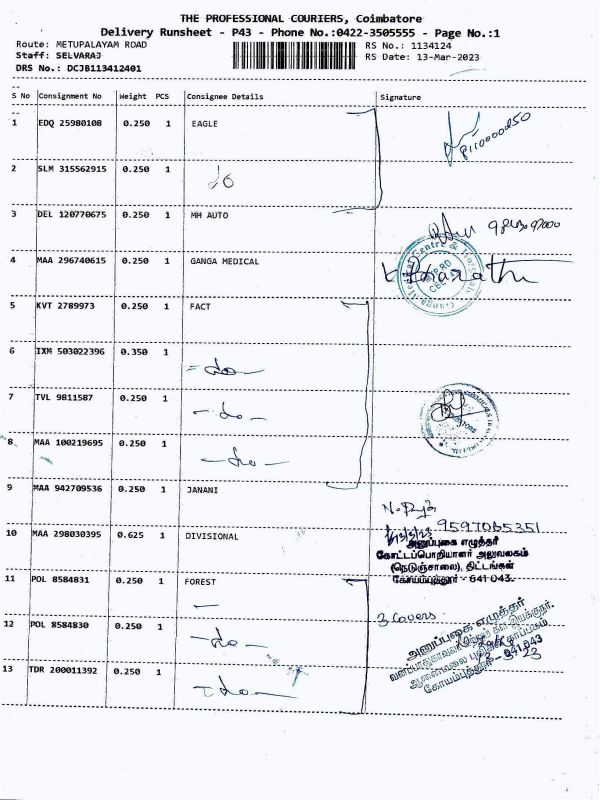 THE PROFESSIONAL COURIERS, Coimbatore
Delivery Runsheet - P43 - Phone No.:0422-3505555 - Page No.:1
Route: METUPALAYAM ROAD RS No.: 1134124
Staff: SELVARAJ RS Date: 13-Mar-2023
DRS No.: DCJB113412401
S No Consignment No Weight PCS Consignee Details Signature
1 EDQ 25980108 0.250 1 EAGLE
2 SLM 315562915 0.250 1
3 DEL 120770675 0.250 1 MH AUTO
4 MAA 296740615 0.250 1 GANGA MEDICAL
Bharathi
5 KVT 2789973 0.250 1 FACT
6 IXM 503022396 0.350 1
7 TVL 9811587 0.250 1
8 MAA 100219695 0.250 1
9 MAA 942709536 0.250 1 JANANI
9597065351
10 MAA 298030395 0.625 1 DIVISIONAL
அனுப்புகை எழுத்தர்
கோட்டப்பொறியாளர் அலுவலகம்
(நெடுஞ்சாலை), திட்டங்கள்
கோயம்புத்தூர் - 641 043.
11 POL 8584831 0.250 1 FOREST
3 Covers
12 POL 8584830 0.250 1
அனுப்புகை எழுத்தர்
13 TDR 200011392 0.250 1